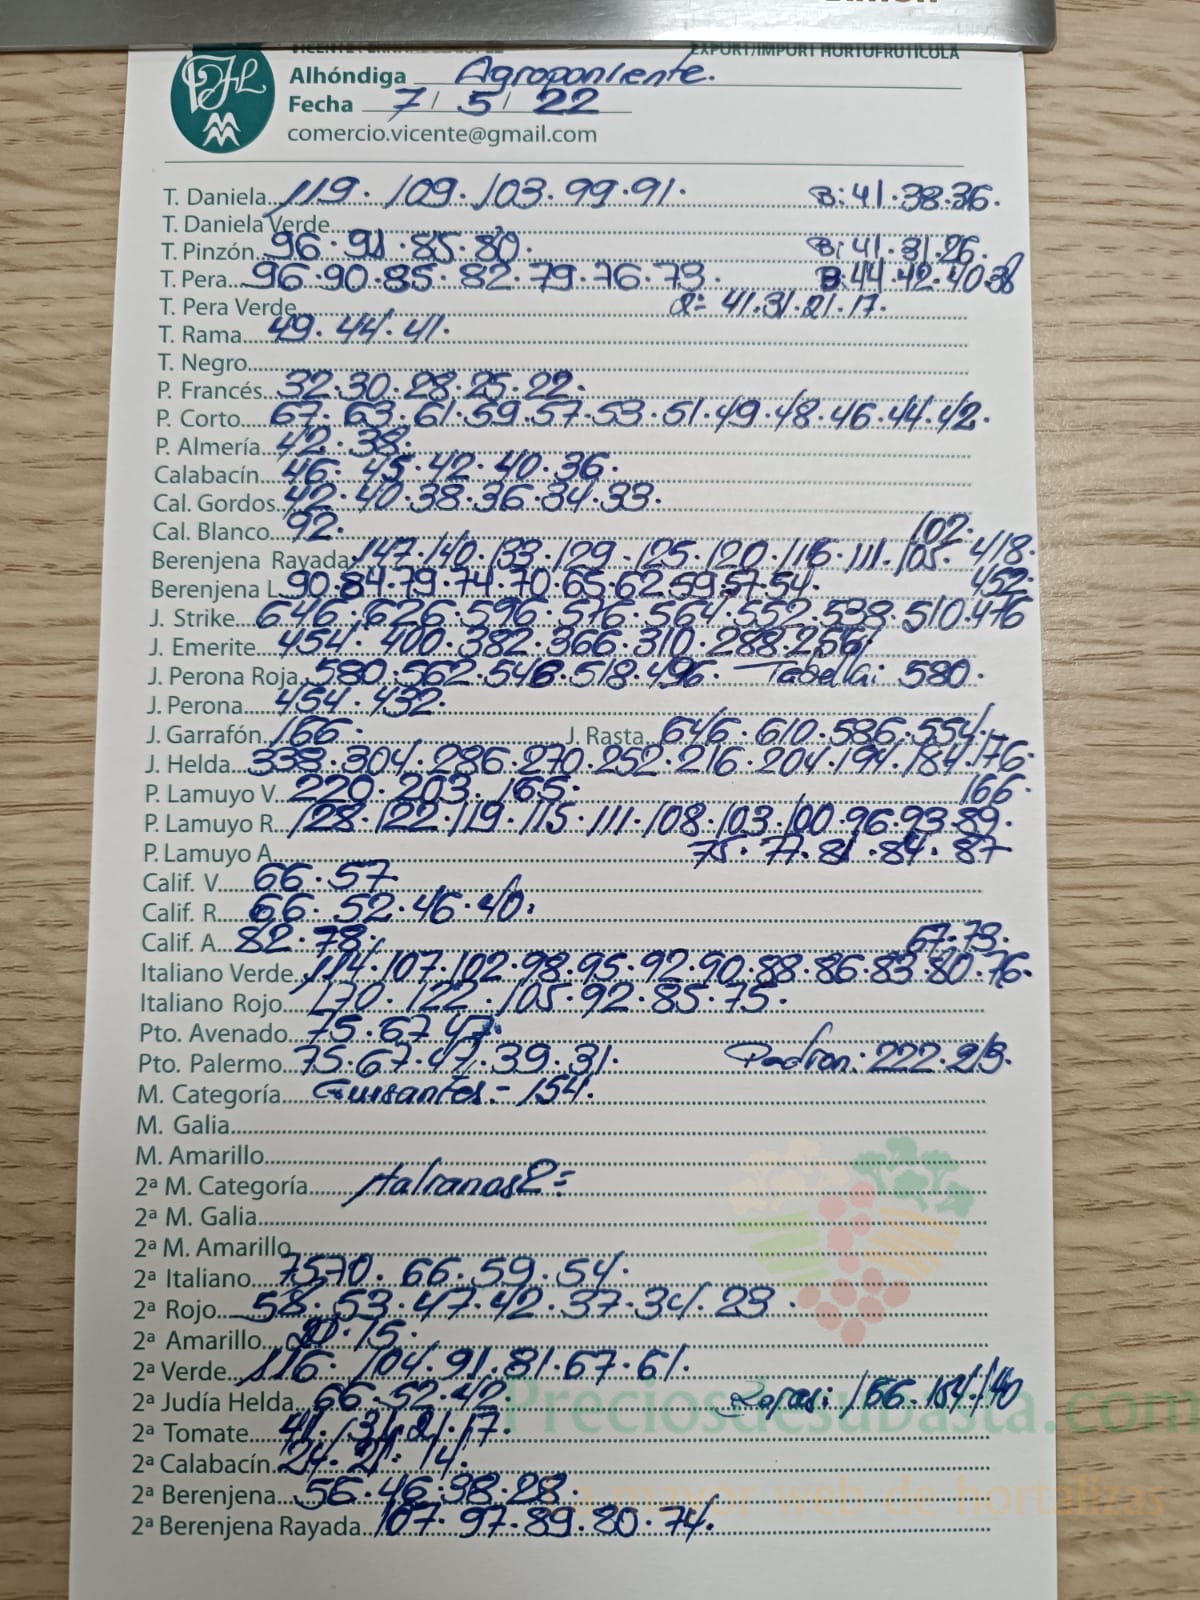 EXPORT/IMPORT HORTOFRUTÍCOLA
Alhóndiga Agroponiente.
Fecha 7/ 5/ 22
comercio.vicente@gmail.com
T. Daniela 119. 109. 103. 99. 91. B: 41. 38. 36.
T. Daniela Verde
T. Pinzón 96. 91. 85. 80. B: 41. 31. 26.
T. Pera 96. 90. 85. 82. 79. 76. 73. B: 44. 42. 40. 38
T. Pera Verde 2= 41. 31. 21. 17.
T. Rama 49. 44. 41.
T. Negro
P. Francés 32. 30. 28. 25. 22.
P. Corto 67. 63. 61. 59. 57. 53. 51. 49. 48. 46. 44. 42.
P. Almería 42. 38.
Calabacín 46. 45. 42. 40. 36.
Cal. Gordos 42. 40. 38. 36. 34. 33.
Cal. Blanco 92. 102.
Berenjena Rayada 147. 140. 133. 129. 125. 120. 116. 111. 105. 418.
Berenjena L 90. 84. 79. 74. 70. 65. 62. 59. 57. 54. 452.
J. Strike 646. 626. 596. 576. 564. 552. 538. 510. 476
J. Emerite 454. 400. 382. 366. 310. 288.
J. Perona Roja 580. 562. 546. 518. 496. Tabella: 580.
J. Perona 454. 432.
J. Garrafón 166. J. Rasta 646. 610. 586. 554.
J. Helda 338. 304. 286. 270. 252. 216. 204. 194. 184. 176.
P. Lamuyo V 220. 203. 165. 166.
P. Lamuyo R 128. 122. 119. 115. 111. 108. 103. 100. 96. 93. 89.
P. Lamuyo A 75. 77. 81. 84. 87
Calif. V 66. 57
Calif. R 66. 52. 46. 40.
Calif. A 82. 78. 67. 73.
Italiano Verde 114. 107. 102. 98. 95. 92. 90. 88. 86. 83. 80. 76.
Italiano Rojo 170. 122. 105. 92. 85. 75.
Pto. Avenado 75. 67 47.
Pto. Palermo 75. 67. 47. 39. 31. Padron: 222. 213.
M. Categoría Guisantes = 154.
M. Galia
M. Amarillo
2ª M. Categoría Italianos 2=
2ª M. Galia
2ª M. Amarillo
2ª Italiano 75 70. 66. 59. 54.
2ª Rojo 58. 53. 47. 42. 37. 34. 23.
2ª Amarillo 15.
2ª Verde 116. 104. 91. 81. 67. 61.
2ª Judía Helda 66. 52. 42. Rojas: 166. 154. 140
2ª Tomate 41. 31. 21. 17.
2ª Calabacín 24. 21. 14.
2ª Berenjena 56. 46. 38. 28.
2ª Berenjena Rayada 107. 97. 89. 80. 74.
Preciosdesubasta.com
La mayor web de hortalizas